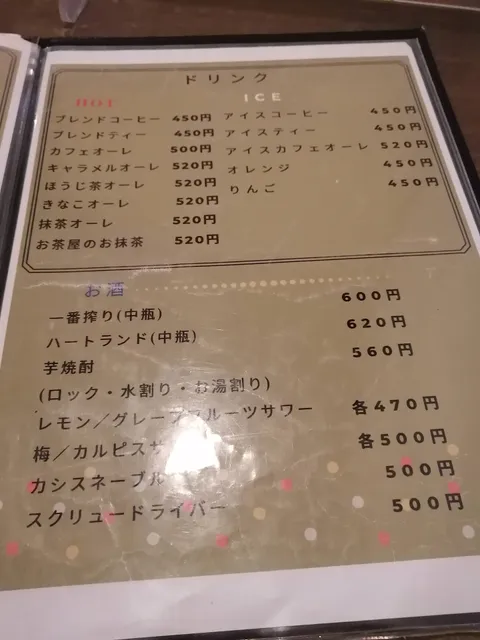 ドリンク
HOT
ブレンドコーヒー 450円
ブレンドティー 450円
カフェオーレ 500円
キャラメルオーレ 520円
ほうじ茶オーレ 520円
きなこオーレ 520円
抹茶オーレ 520円
お茶屋のお抹茶 520円
ICE
アイスコーヒー 450円
アイスティー 450円
アイスカフェオーレ 520円
オレンジ 450円
りんご 450円
お酒
一番搾り(中瓶) 600円
ハートランド(中瓶) 620円
芋焼酎 560円
(ロック・水割り・お湯割り)
レモン／グレープフルーツサワー 各470円
梅／カルピスサ 各500円
カシスネーブル 500円
スクリュードライバー 500円